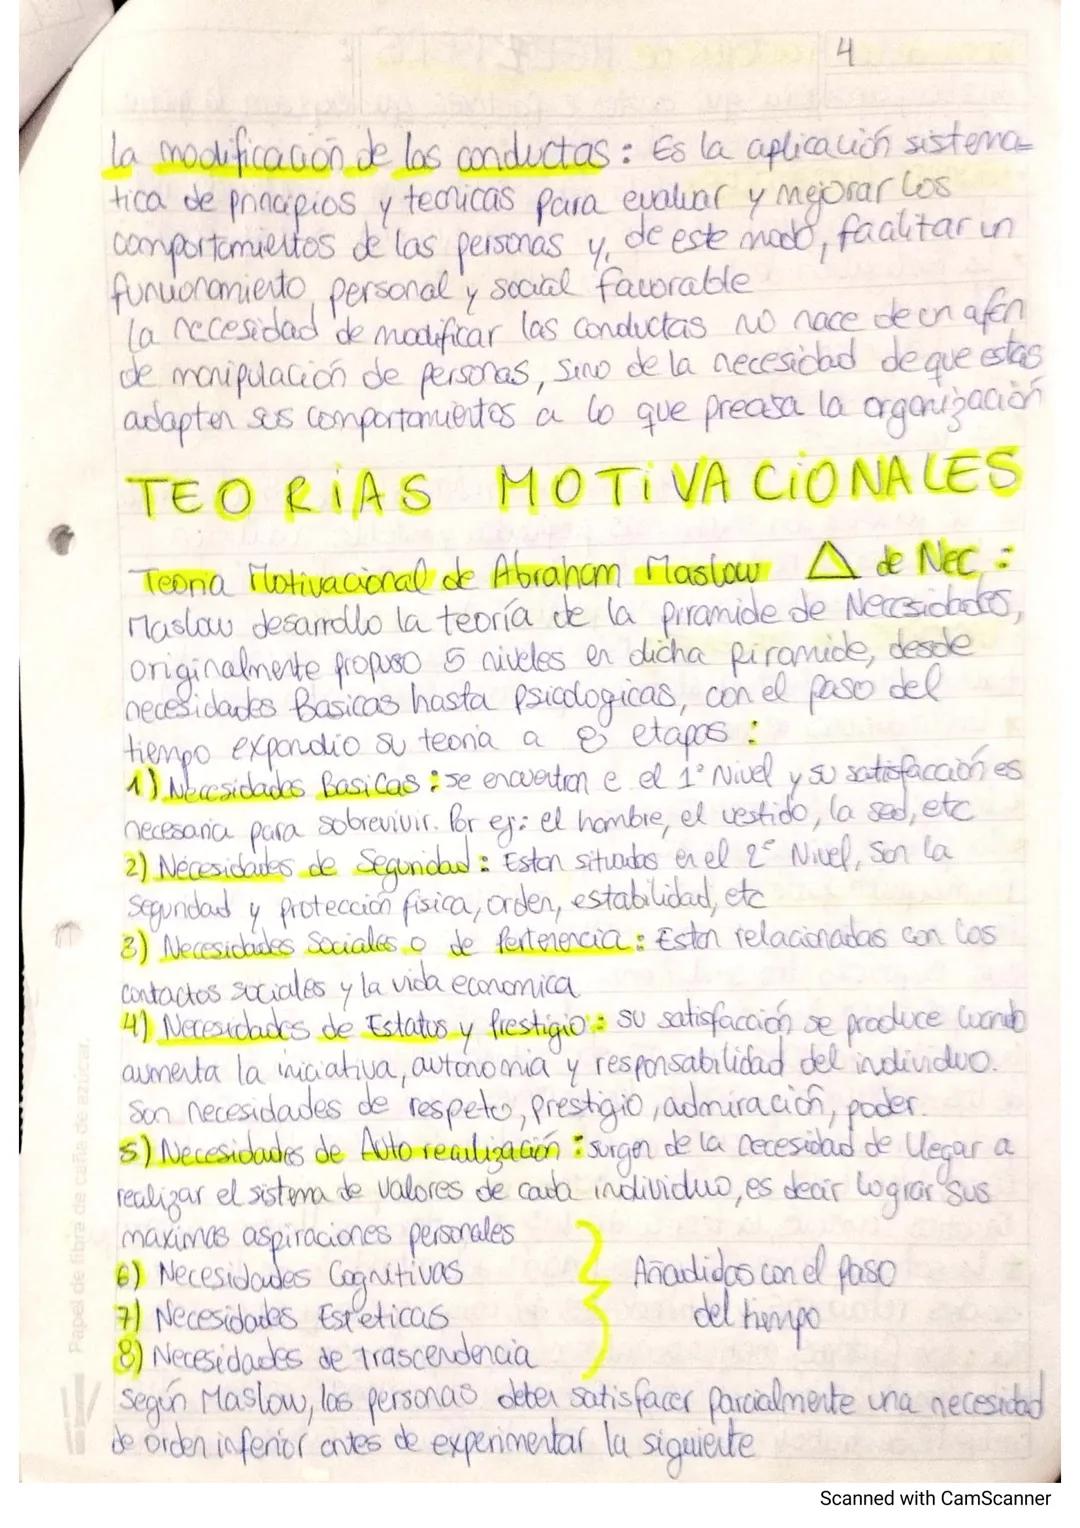 4
La modificación de las conductas: Es la aplicación sistema-
tica de principios y tecnicas para evaluar y mejorar los
comportamientos de las personas y, de este modo, facilitar un
funcionamiento personal y social favorable
La necesidad de modificar las conductas no nace de un afén
de manipulación de personas, sino de la necesidad de que estas
adapten sus comportamientos a lo que precisa la organización
TEORiAS MOTiVACiONALES
Teoria Motivacional de Abraham Maslow △ de Nec.:
Maslow desarrollo la teoría de la piramide de Necesidades,
originalmente propuso 5 niveles en dicha piramide, desde
necesidades Basicas hasta psicologicas, con el paso del
tiempo expandio su teoria a 8 etapas:
1) Necesidades Basicas: se encuentran e el 1º Nivel y su satisfacción es
necesaria para sobrevivir. Por ej: el hambre, el vestido, la sed, etc
2) Necesidades de Seguridad: Estan situados en el 2º Nivel, Son la
Seguridad y protección física, orden, estabilidad, etc
3) Necesidades Sociales o de Pertenencia: Estan relacionadas con los
contactos sociales y la vida economica
4) Necesidades de Estatus y Prestigio: su satisfacción se produce cuando
aumenta la iniciativa, autonomia y responsabilidad del individuo.
Son necesidades de respeto, prestigio, admiración, poder.
5) Necesidades de Auto realización: surgen de la necesidad de llegar a
realizar el sistema de valores de cada individuo, es decir lograr sus
maximas aspiraciones personales
6) Necesidades Cognitivas
7) Necesidades Estéticas
8) Necesidades de trascendencia
Añadidas con el paso
del tiempo
Según Maslow, las personas deben satisfacer parcialmente una necesidad
de orden inferior antes de experimentar la siguiente
Papel de fibra de caña de azúcar.
Scanned with CamScanner